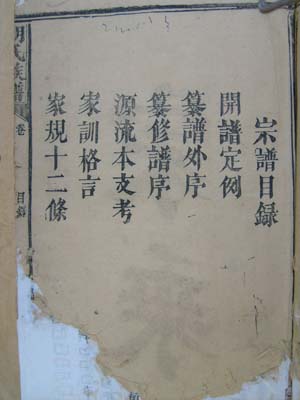 宗譜目録
開譜定例
纂譜外序
纂修譜序
源流本支考
家訓格言
家規十二條
胡氏族譜
卷
目録